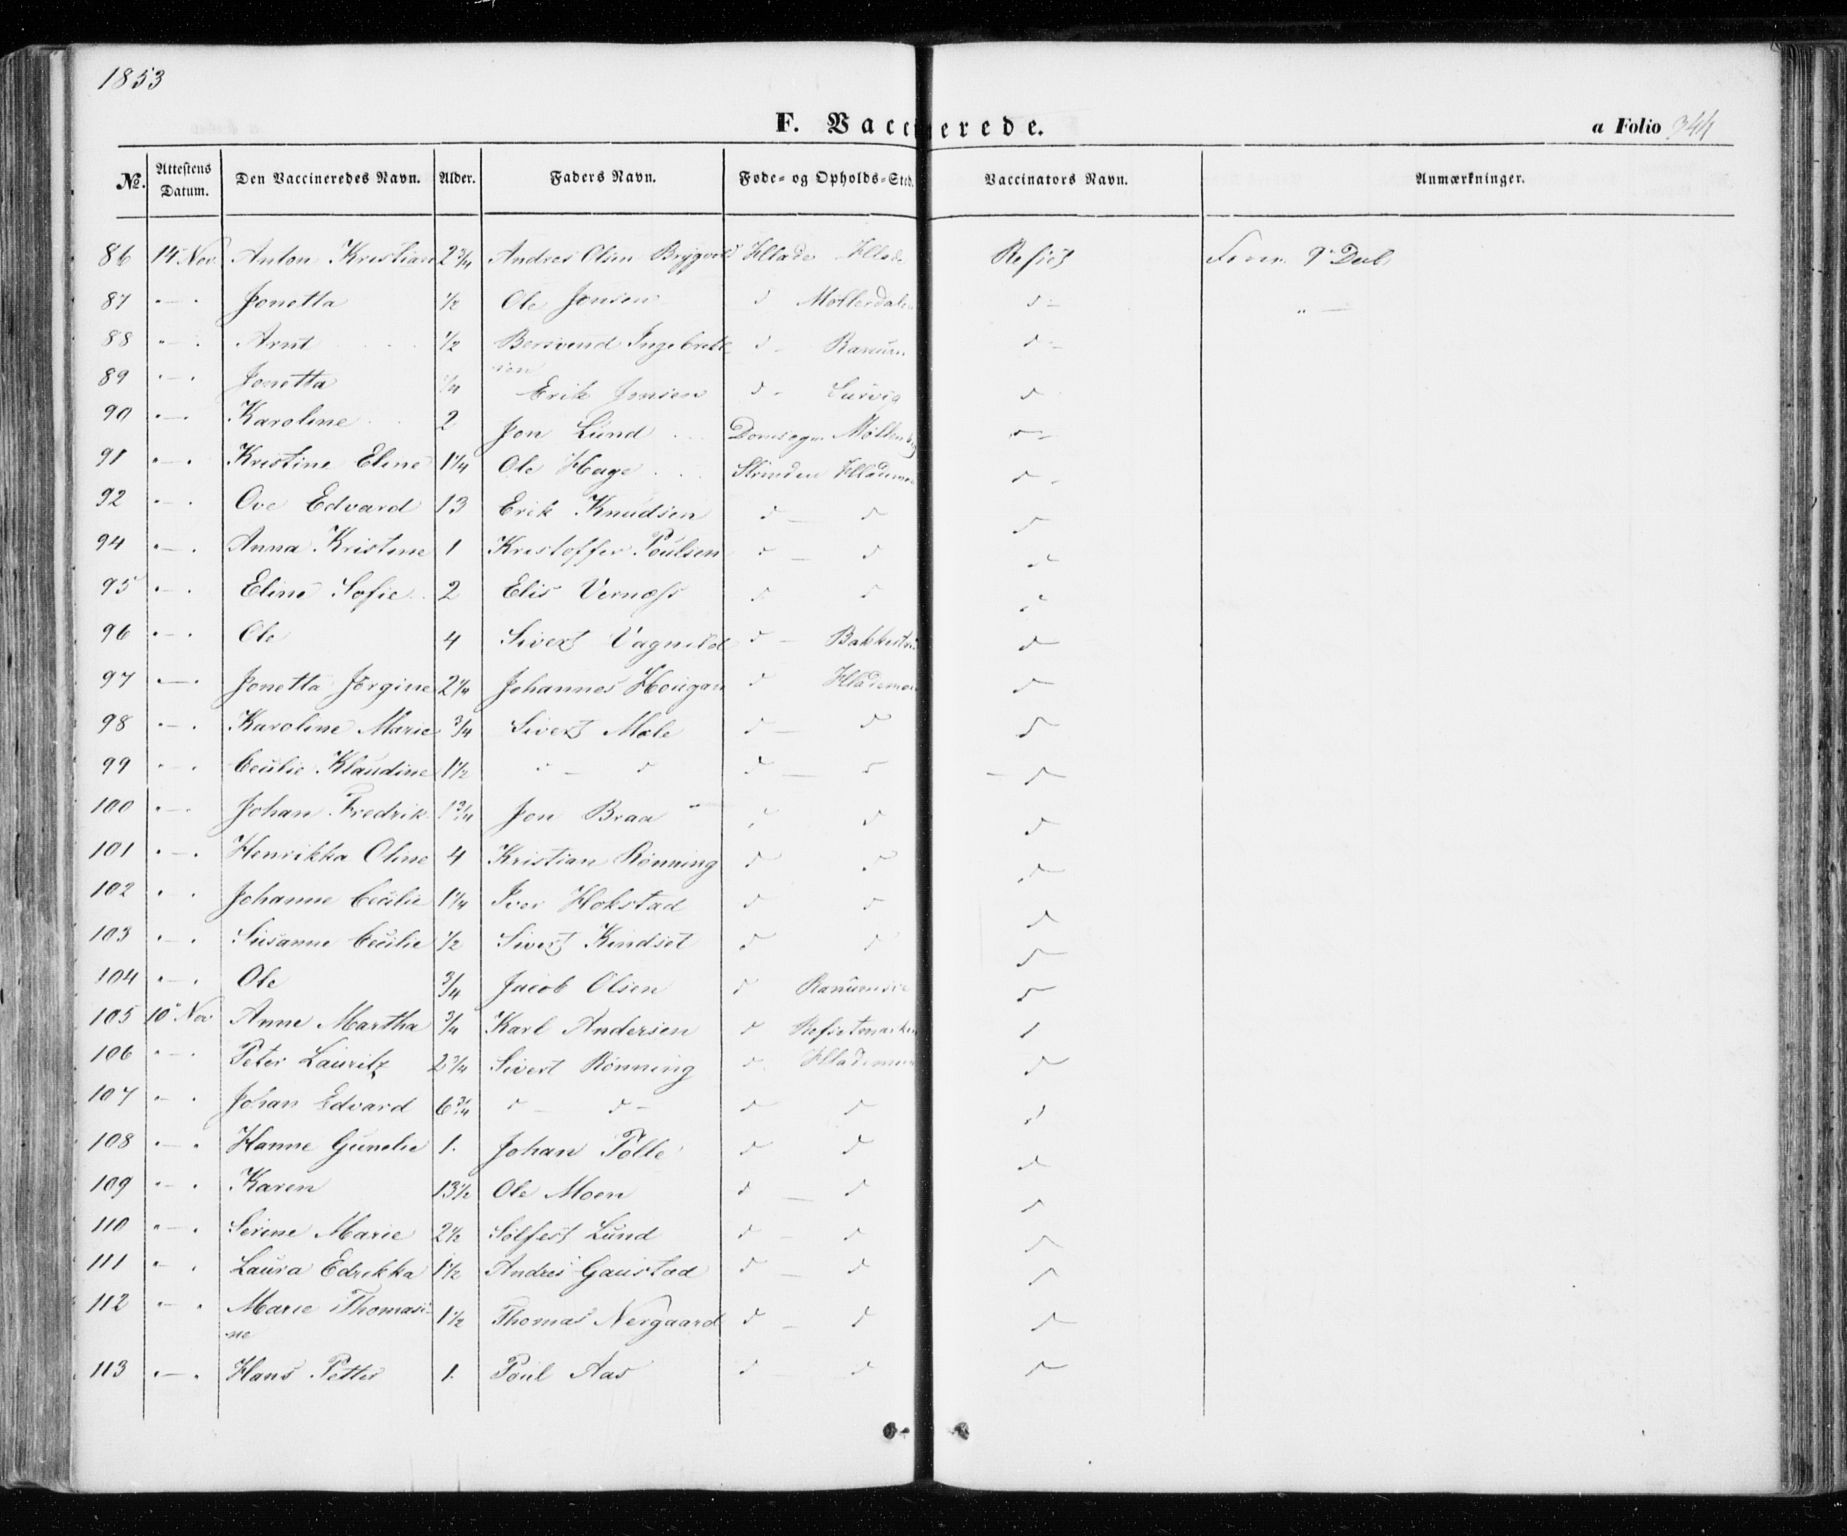 1853
F. Vaccinerede.
a Folio 344
No. Attestens Datum. Den Vaccineredes Navn. Alder. Faders Navn. Føde- og Opholds-Sted. Vaccinators Navn. Anmærkninger.
86 14 Nov Anton Kristian 2 3/4 Andres Olsen Hlade Hlade
87 " — " Jonetta 1/2 Ole Jonsen d Møllerdalen d —
88 " — " Arnt 1/2 Bersvend Ingebrekt d — Ranum d —
sen
89 " — " Jonetta 1/4 Erik Jonsen d — d
90 " — " Karoline 2 Jon Lund Domsogn Møllenbg d —
91 " — " Kristine Eline 1 1/4 Ole Hage Strinden Hlademoen d —
92 " — " Ove Edvard 13 Erik Knudsen d — d d
94 " — " Anna Kristine 1 Kristoffer Poulsen d — d d
95 " — " Eline Sofie 2 Elis Vernæss d d d
96 " — " Ole 4 Sivert Vagnild d — d
97 " — " Jonetta Jørgine 2 1/4 Johannes Hougan d Hlademoen d
98 " — " Karoline Marie 3/4 Sivert Mæle d — d d
99 " — " Cecilie Klaudine 1 1/2 d — d d — d — d
100 " — " Johan Fredrik 1 3/4 Jon Braa d d d
101 " — " Henrikka Oline 4 Kristian Rønning d d d
102 " " Johanne Cecilie 1 1/4 Iver Hokstad d d d
103 " — " Susanne Cecilie 1/2 Sivert Kindset d d d
104 " — " Ole 3/4 Jacob Olsen d d
105 10 Nov Anne Martha 3/4 Karl Andersen d d
106 " — " Peter Lauritz 2 3/4 Sivert Rønning d Hlademoen d
107 " — " Johan Edvard 6 3/4 d — d — d d d
108 " — " Hanne Gunelie 1. Johan Tølle d d d
109 " — " Karen 13 1/2 Ole Moen d — d d
110 " — " Serine Marie 2 1/2 Solfest Lund d — d d
111 " — " Laura Edrikka 1 1/2 Andres Gaustad d — d d
112 " — " Marie Thomasi- 1 1/2 Thomas Nergaard d — d d
ne
113 " — " Hans Petter 1. Poul Aas d — d d